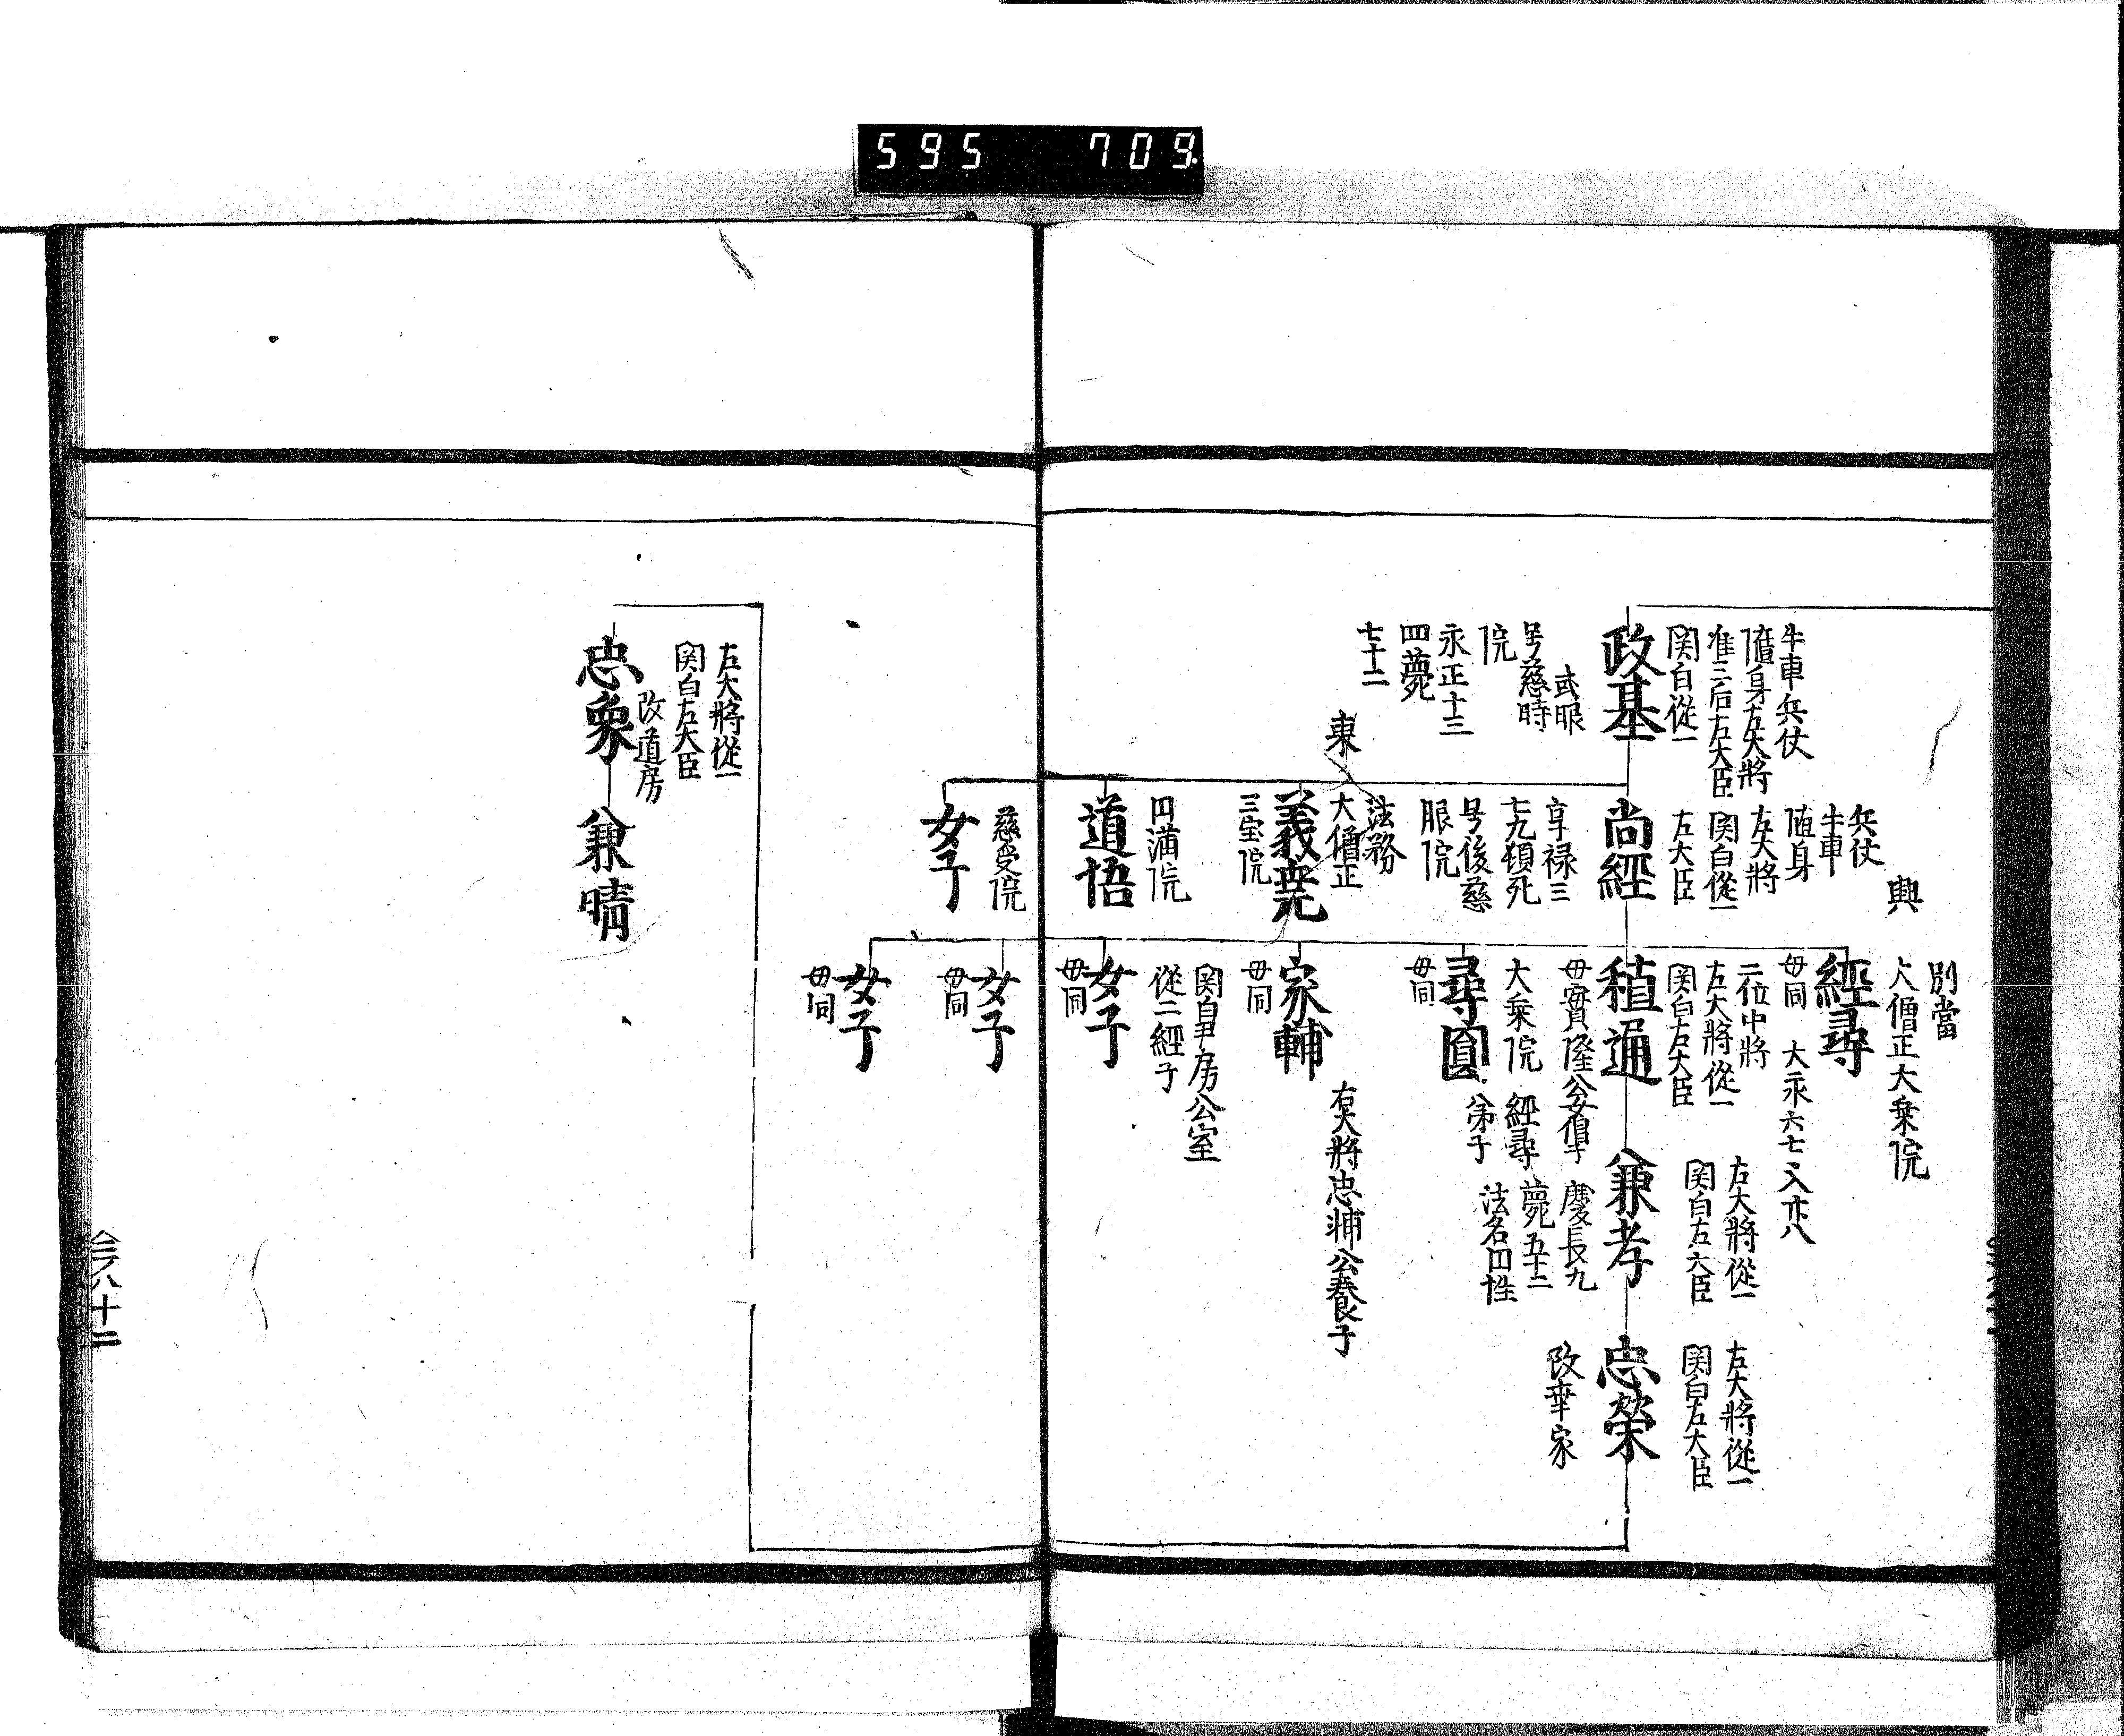 595 709
牛車兵仗
随身左大將
准三后左大臣
関白從一
政基
号慈眼
院
永正十三
四薨
七十二
兵仗
牛車
随身
左大將
関白從一
右大臣
尚經
享禄三
七九頓死
号後慈
眼院
東
法務
大僧正
義尭
三宝院
円満院
道悟
慈受院
女子
興
別當
大僧正大乗院
經尋
母同
大永六七
二位中將
左大將從一
関白左大臣
稙通
大乗院
經尋
弟子
尋圓
母同
家輔
母同
右大將忠輔公養子
從二經子
女子
母同
女子
母同
女子
母同
左大將從一
関白左大臣
兼孝
慶長九
薨五十二
法名円性
左大將從一
関白左大臣
忠榮
改幸家
左大將從一
関白左大臣
忠象
改道房
兼晴
八十二